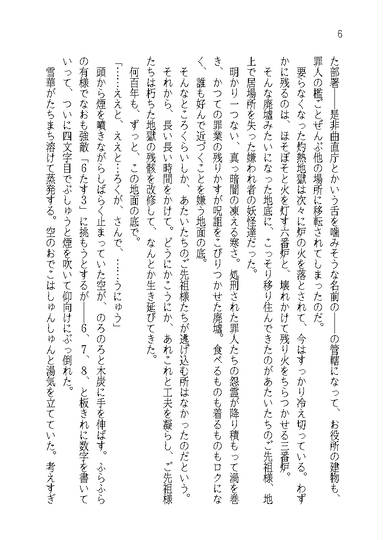 6
た部署――是非曲直庁とかいう舌を噛みそうな名前の――の管轄になって、お役所の建物も、
罪人の檻ごとぜんぶ他の場所に移転されてしまったのだ。
要らなくなった灼熱地獄は次々に炉の火を落とされて、今はすっかり冷え切っている。わず
かに残るのは、ほそぼそと火を灯す六番炉と、壊れかけて残り火をちらつかせる三番炉。
そんな廃墟みたいになった地底に、こっそり移り住んできたのがあたいたちのご先祖様、地
上で居場所を失った嫌われ者の妖怪達だった。
明かり一つない、真っ暗闇の凍える寒さ。処刑された罪人たちの怨霊が降り積もって渦を巻
き、かつての罪業の残りかすが呪詛をこびりつかせた廃墟。食べるものも着るものもロクにな
く、誰も好んで近づくことを嫌う地面の底。
そんなところくらいしか、あたいたちのご先祖様たちが逃げ込む所はなかったのだという。
それから、長い長い時間をかけて。どうにかこうにか、あれこれと工夫を凝らし、ご先祖様
たちは朽ちた地獄の残骸を改修して、なんとか生き延びてきた。
何百年も、ずっと、この地面の底で。
「……ええと、ええと……ろくが、さんで、……うにゅう」
頭から煙を噴きながらしばらく止まっていた空が、のろのろと木炭に手を伸ばす。ふらふら
の有様でなおも強敵「６たす３」に挑もうとするが――６、７、８、と板きれに数字を書いて
いって、ついに四文字目でぷしゅうと煙を吹いて仰向けにぶっ倒れた。
雪華がたちまち溶けて蒸発する。空のおでこはしゅんしゅんと湯気を立てていた。考えすぎ